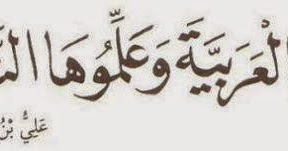 العَرَبِيَّةَ وَعَلِّمُوهَا
عَلِيُّ بْنُ